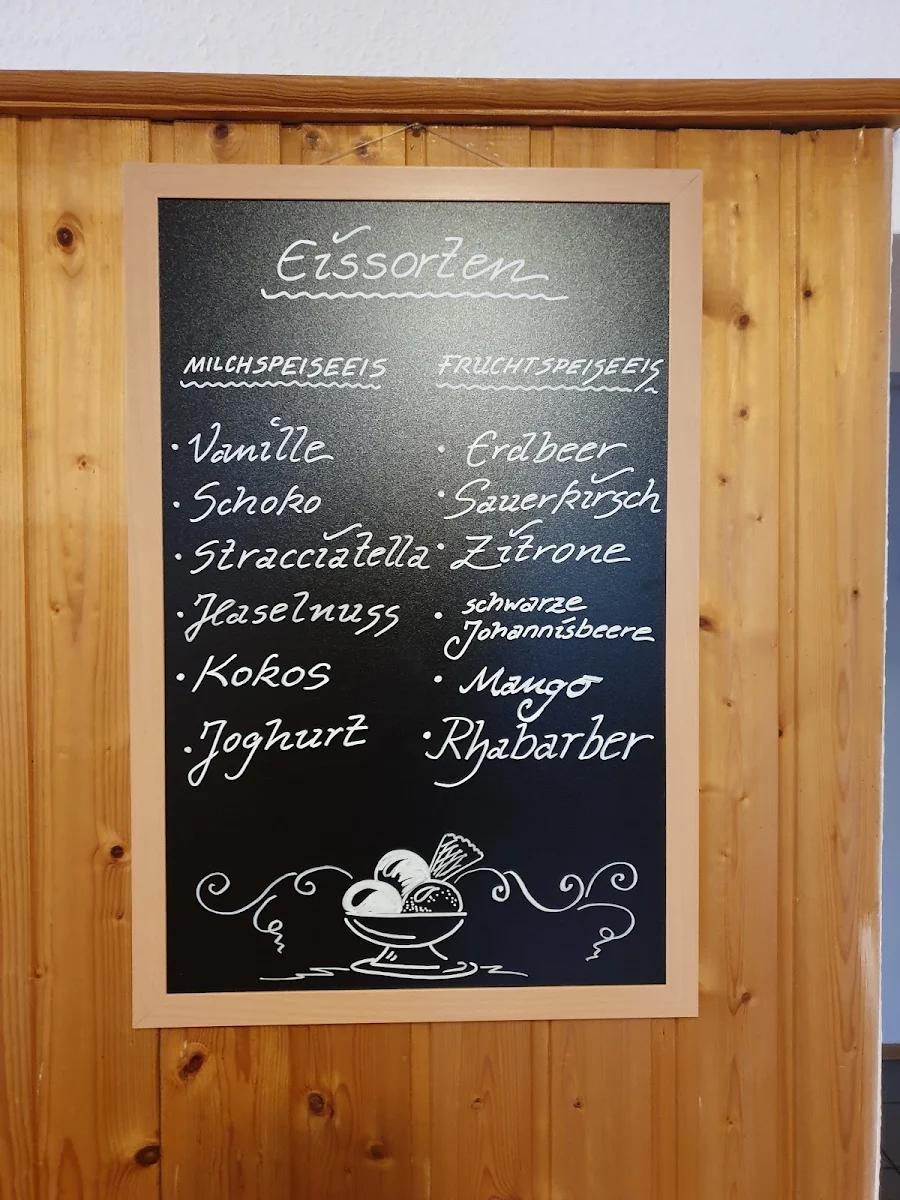 Eissorten
MILCHSPEISEEIS
· Vanille
· Schoko
· Stracciatella
· Haselnuss
· Kokos
· Joghurt
FRUCHTSPEISEEIS
· Erdbeer
· Sauerkirsch
· Zitrone
· schwarze
Johannisbeere
· Mango
· Rhabarber